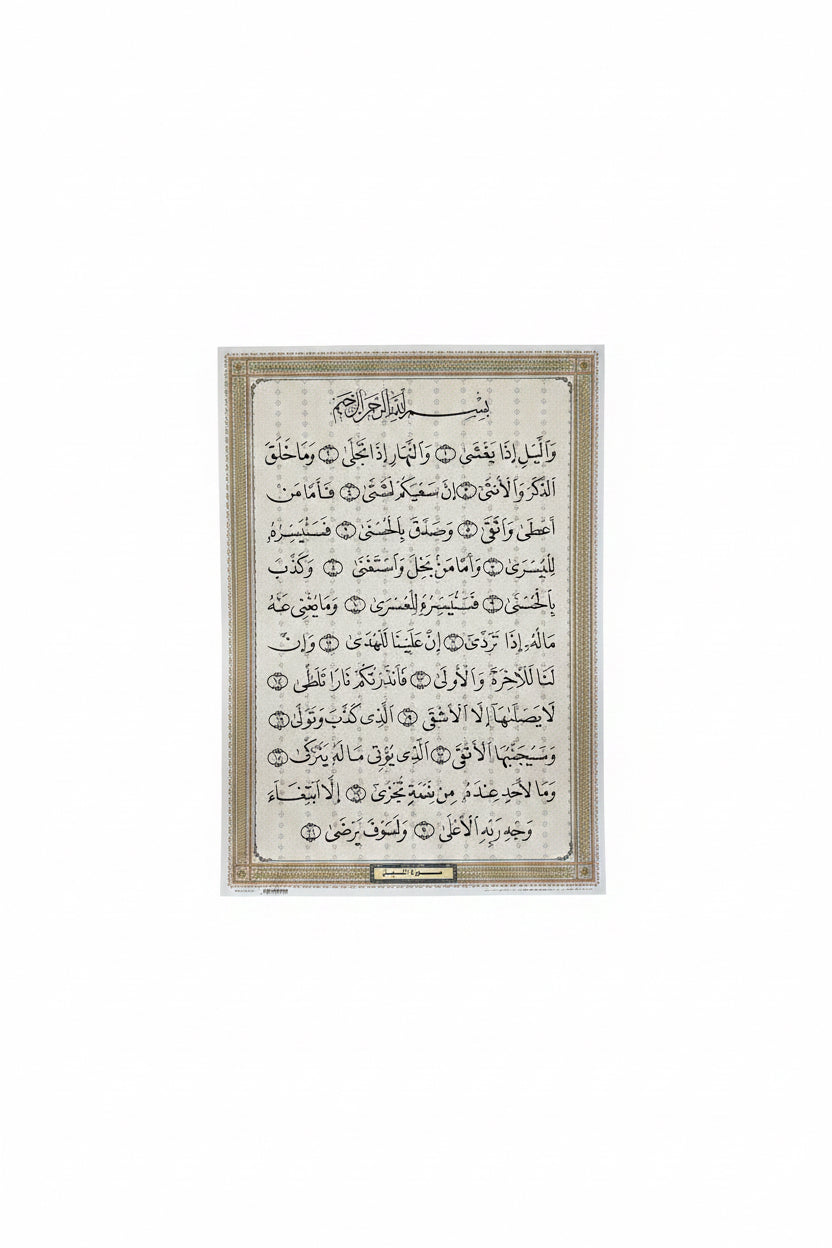 بِسْمِ اللَّهِ الرَّحْمَٰنِ الرَّحِيمِ
وَاللَّيْلِ إِذَا يَغْشَىٰ ١ وَالنَّهَارِ إِذَا تَجَلَّىٰ ٢ وَمَا خَلَقَ
الذَّكَرَ وَالْأُنثَىٰ ٣ إِنَّ سَعْيَكُمْ لَشَتَّىٰ ٤ فَأَمَّا مَنْ
أَعْطَىٰ وَاتَّقَىٰ ٥ وَصَدَّقَ بِالْحُسْنَىٰ ٦ فَسَنُيَسِّرُهُ
لِلْيُسْرَىٰ ٧ وَأَمَّا مَنْ بَخِلَ وَاسْتَغْنَىٰ ٨ وَكَذَّبَ
بِالْحُسْنَىٰ ٩ فَسَنُيَسِّرُهُ لِلْعُسْرَىٰ ١٠ وَمَا يُغْنِي عَنْهُ
مَالُهُ إِذَا تَرَدَّىٰ ١١ إِنَّ عَلَيْنَا لَلْهُدَىٰ ١٢ وَإِنَّ
لَنَا لَلْآخِرَةَ وَالْأُولَىٰ ١٣ فَأَنْذَرْتُكُمْ نَارًا تَلَظَّىٰ ١٤
لَا يَصْلَاهَا إِلَّا الْأَشْقَى ١٥ الَّذِي كَذَّبَ وَتَوَلَّىٰ ١٦
وَسَيُجَنَّبُهَا الْأَتْقَى ١٧ الَّذِي يُؤْتِي مَالَهُ يَتَزَكَّىٰ ١٨
وَمَا لِأَحَدٍ عِنْدَهُ مِنْ نِعْمَةٍ تُجْزَىٰ ١٩ إِلَّا ابْتِغَاءَ
وَجْهِ رَبِّهِ الْأَعْلَىٰ ٢٠ وَلَسَوْفَ يَرْضَىٰ ٢١
سورة الليل